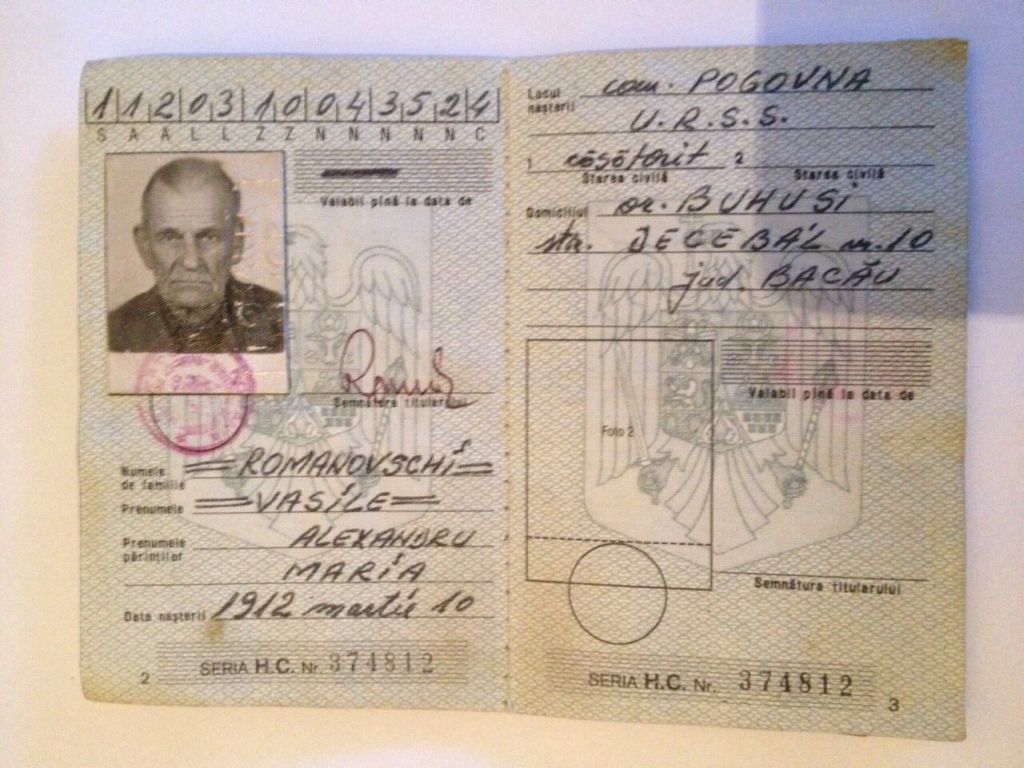 1 1 2 0 3 1 0 0 4 3 5 2 4
S A A L L Z Z N N N N N C
Valabil pînă la data de
Semnătura titularului
Numele de familie ROMANOVSCHI
Prenumele VASILE
Prenumele părinților ALEXANDRU
MARIA
Data nașterii 1912 martie 10
SERIA H.C. Nr. 374812
2
Locul nașterii com. POGOVNA
U.R.S.S.
1 căsătorit 2
Starea civilă Starea civilă
Domiciliul or. BUHUSI
str. DECEBAL nr. 10
jud. BACĂU
Valabil pînă la data de
Foto 2
Semnătura titularului
SERIA H.C. Nr. 374812
3